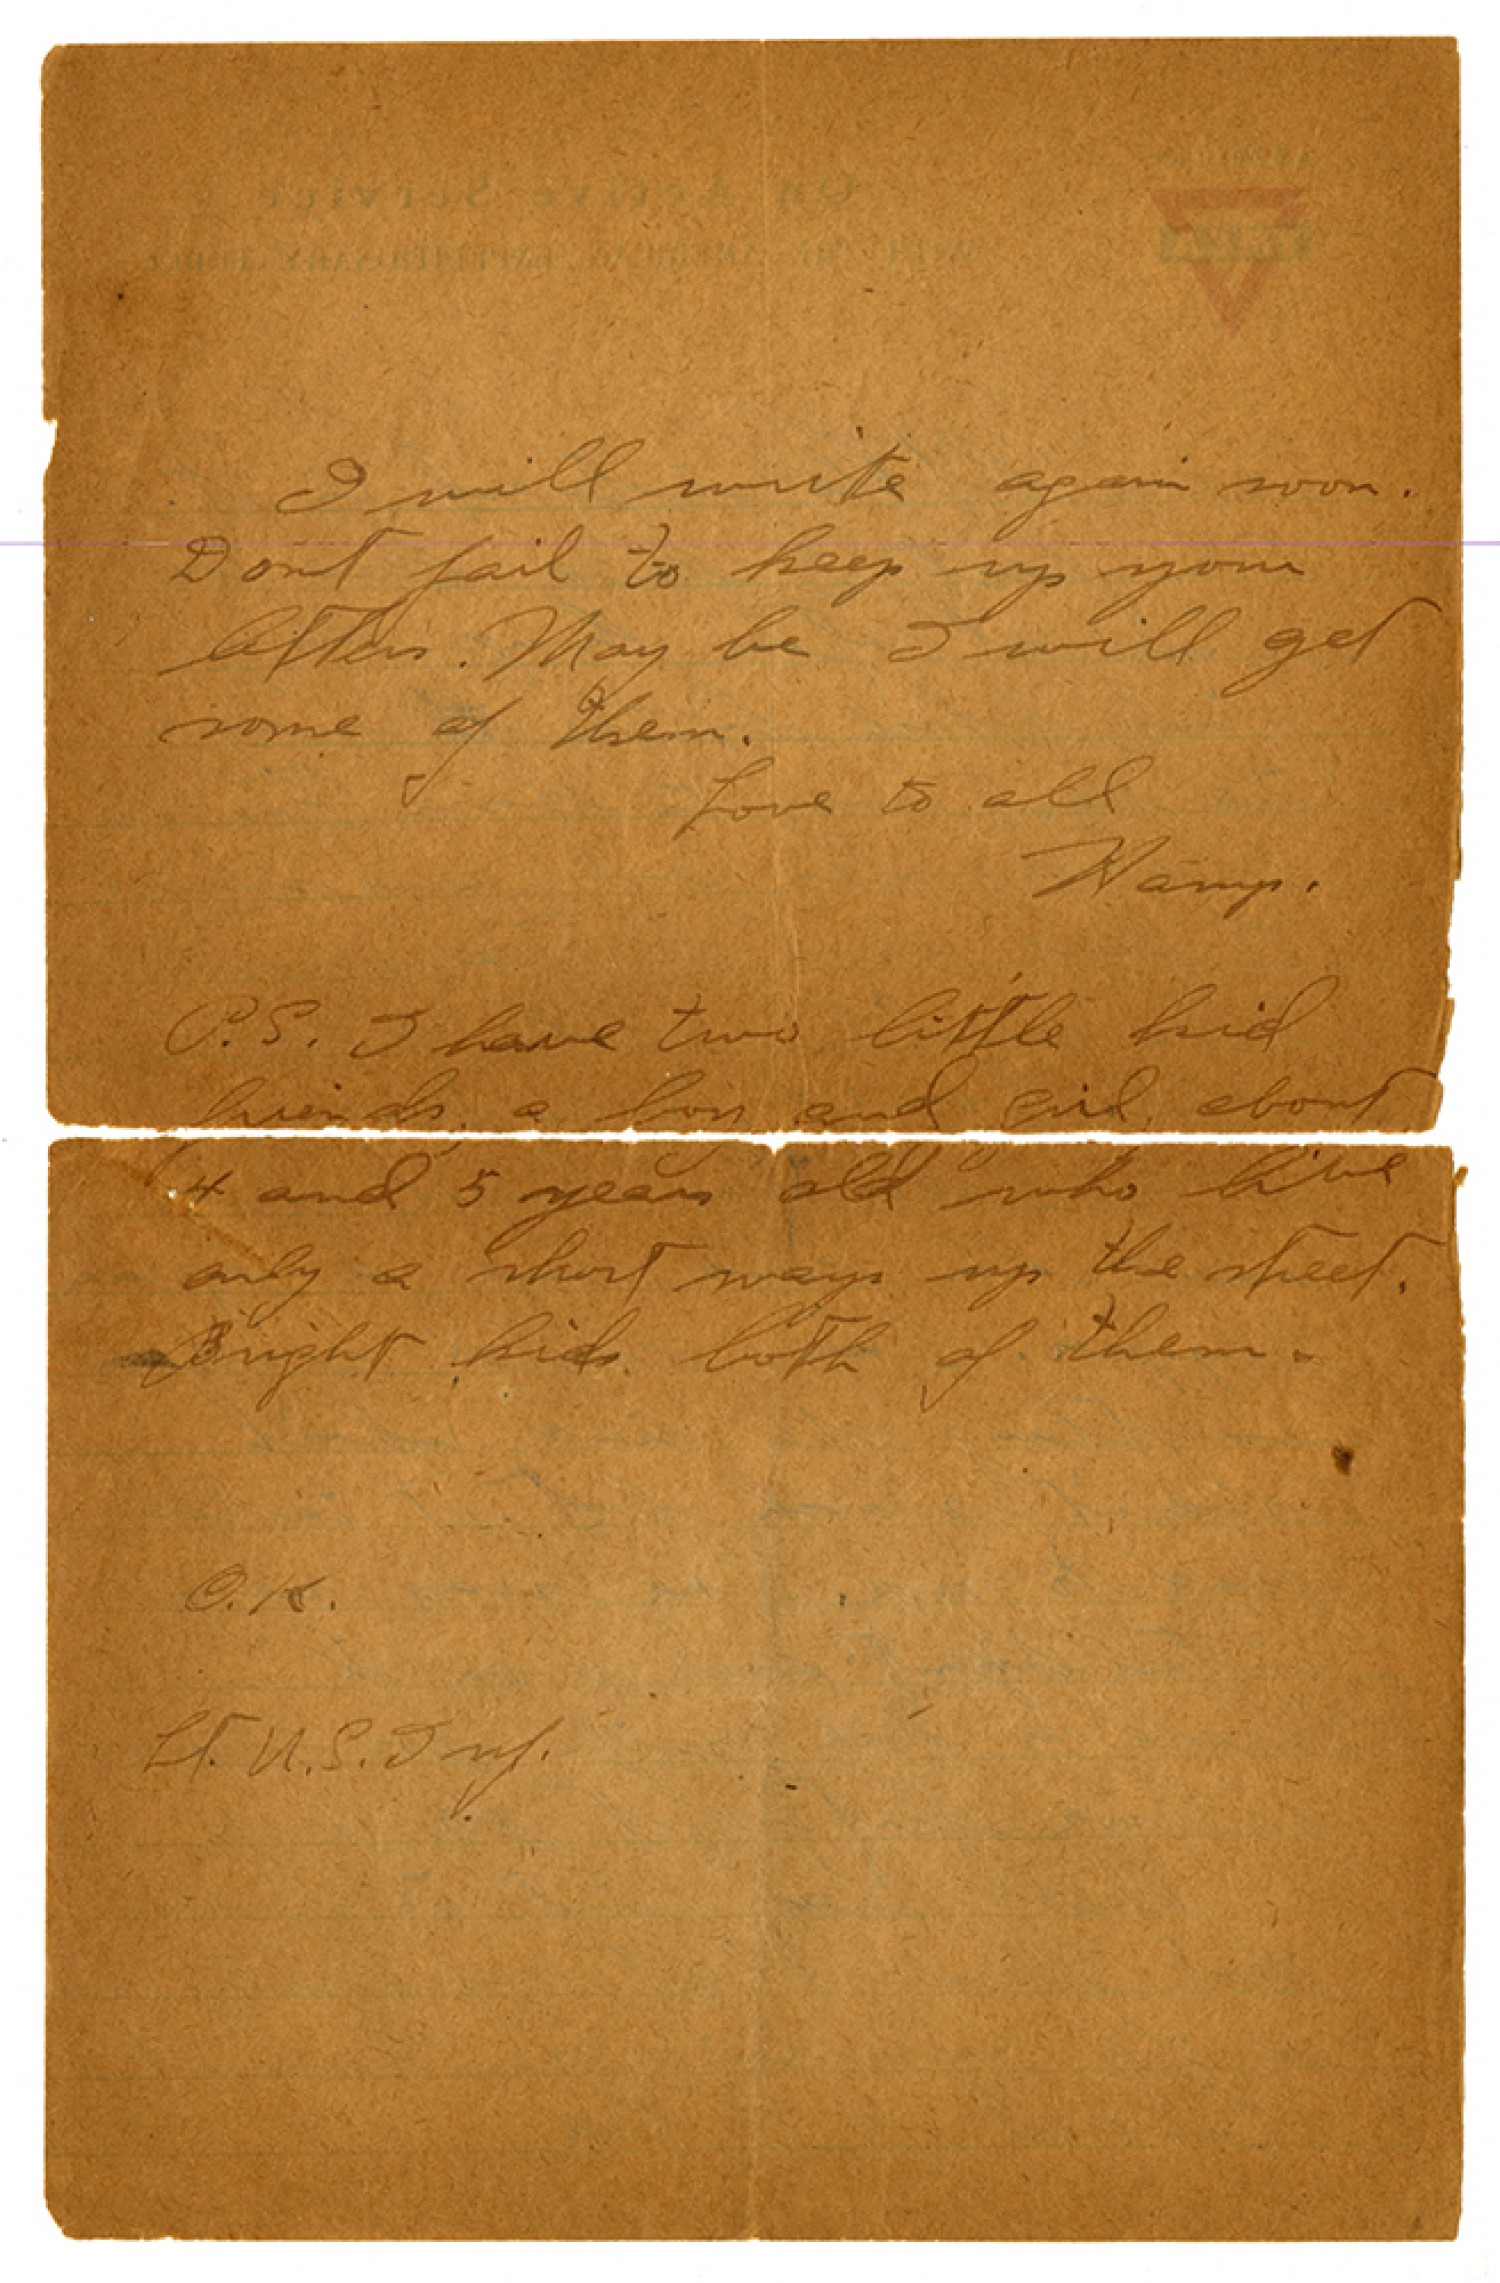 I will write again soon.
Dont fail to keep up your
letters. May be I will get
some of them.
Love to all
Hamp.
P.S. I have two little kid
friends, a boy and girl, about
4 and 5 years old who live
only a short ways up the street.
Bright kids both of them.
O.K.
Lt. U.S. Inf.